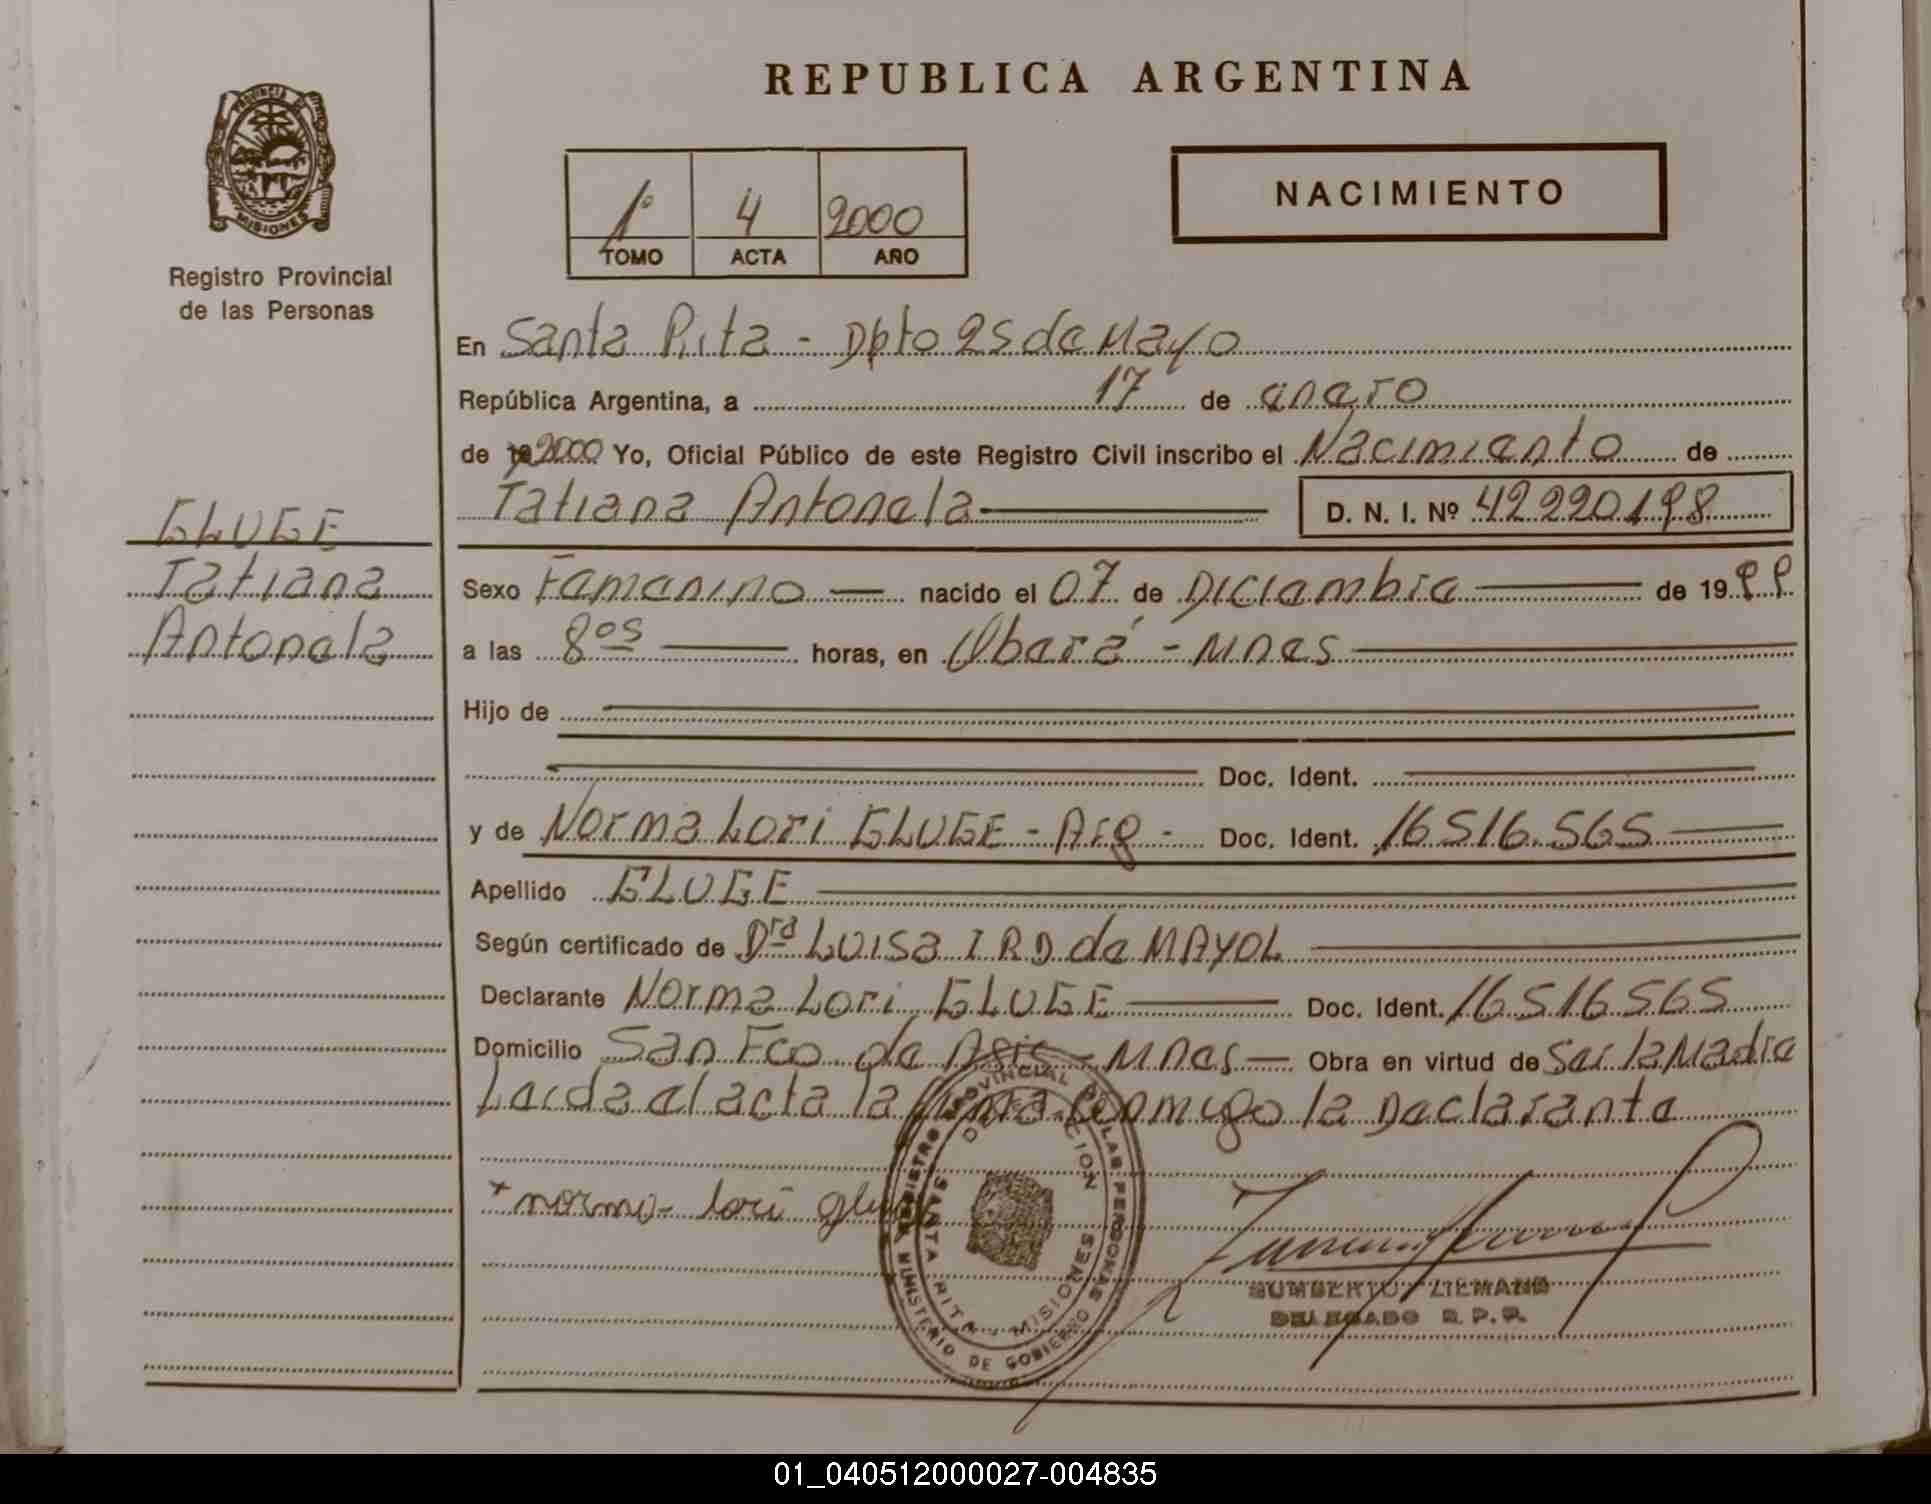 REPUBLICA ARGENTINA
PROVINCIA DE
MISIONES
Registro Provincial
de las Personas
1º 4 2000
TOMO ACTA AÑO
NACIMIENTO
En Santa Rita - Dpto 25 de Mayo
República Argentina, a 17 de enero
de 2000 Yo, Oficial Público de este Registro Civil inscribo el Nacimiento de
Tatiana Antonela D. N. I. Nº 42220198
GLUGE
Tatiana
Antonela
Sexo Femenino nacido el 07 de Diciembre de 1999
a las 8os horas, en Oberá - Mnes
Hijo de
Doc. Ident.
y de Norma Lori GLUGE - Arg - Doc. Ident. 16516.565
Apellido GLUGE
Según certificado de Dra LUISA I.R.D. de MAYOL
Declarante Norma Lori GLUGE Doc. Ident. 16516565
Domicilio San Fco. de Asis - Mnes Obra en virtud de Ser la Madre
Leida el acta la firma conmigo la Declarante
norma lori
REGISTRO PROVINCIAL DE LAS PERSONAS
MINISTERIO DE GOBIERNO
SANTA RITA - MISIONES
HUMBERTO ZIEMANN
DELEGADO R.P.P.
01_040512000027-004835